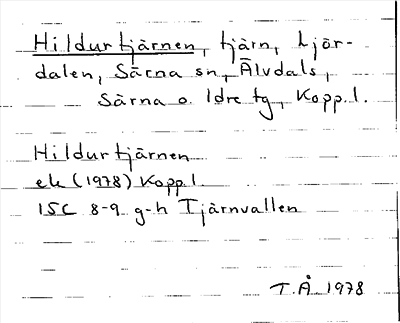 Hildurtjärnen, tjärn, Ljör-
dalen, Särna sn, Älvdals,
Särna o. Idre tg, Kopp.l.
Hildurtjärnen
ek (1978) Kopp.l.
15C 8-9 g-h Tjärnvallen
T.Å 1978